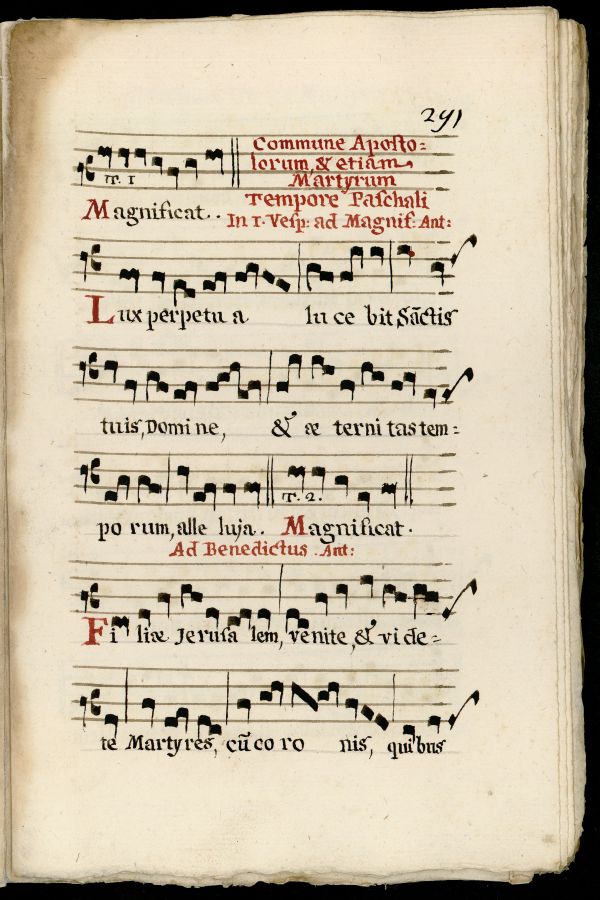 291
Commune Aposto=
lorum, & etiam
Martyrum
Tempore Paschali
In 1. Vesp: ad Magnif: Ant:
Tr. 1
Magnificat..
Lux perpetu a lu ce bit Sãctis
tuis, Domi ne, & æ terni tas tem=
po rum, alle luja. Magnificat.
Tr. 2.
Ad Benedictus. Ant:
Fi liæ Jerusa lem, venite, & vide=
te Martyres, cũ co ro nis, quibus